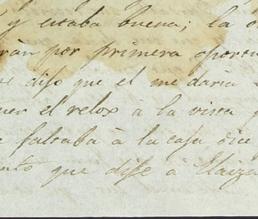 y estaba buena; la o
rán por primera oportu
dijo que el me daria
ner el relox à la vista y
faltaba à la caja dice
nto que dife à Elaiza